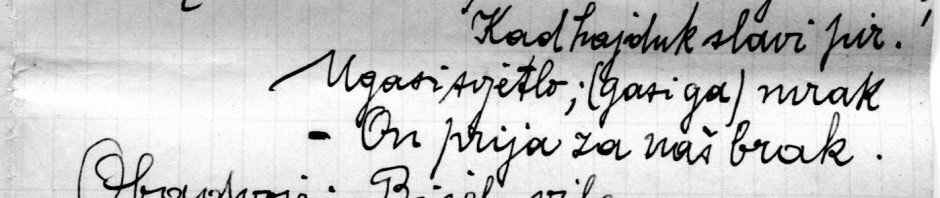 Kad hajduk slavi pir.!
Ugasi svjetlo; (gasi ga) mrak
- On prija za naš brak.